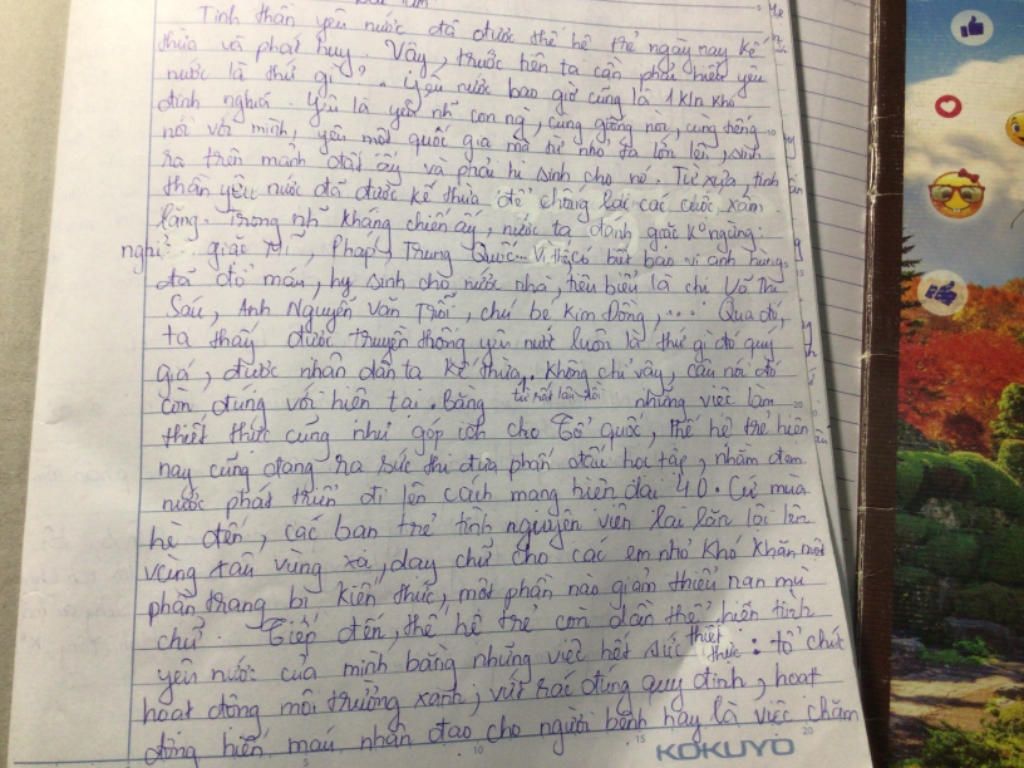 Bài làm
Tinh thần yêu nước đã được thế hệ trẻ ngày nay kế
thừa và phát huy. Vậy, trước tiên ta cần phải hiểu yêu
nước là thứ gì? Yêu nước bao giờ cũng là 1 k/n khó
định nghĩa. Yêu là yêu nh~ con ng, cùng giống nòi, cùng tiếng
nói với mình, yêu một quốc gia mà từ nhỏ ta lớn lên, sinh
ra trên mảnh đất ấy và phải hi sinh cho nó. Từ xưa, tinh
thần yêu nước đã được kế thừa để chống lại các cuộc xâm
lăng. Trong nh~ kháng chiến ấy, nước ta đánh giặc k° ngừng
nghỉ: giặc Mĩ, Pháp, Trung Quốc... Vì thế, có biết bao vị anh hùng
đã đổ máu, hy sinh cho nước nhà, tiêu biểu là chị Võ Thị
Sáu, Anh Nguyễn Văn Trỗi, chú bé Kim Đồng,... Qua đó,
ta thấy được truyền thống yêu nước luôn là thứ gì đó quý
giá, được nhân dân ta kế thừa từ rất lâu đời. Không chỉ vậy, câu nói đó
còn đúng với hiện tại. Bằng những việc làm
thiết thực cũng như góp ích cho Tổ quốc, thế hệ trẻ hiện
nay cũng đang ra sức thi đua phấn đấu học tập, nhằm đem
nước phát triển đi lên cách mạng hiện đại 4.0. Cứ mùa
hè đến, các bạn trẻ tình nguyện viên lại lặn lội lên
vùng sâu vùng xa, dạy chữ cho các em nhỏ khó khăn một
phần trang bị kiến thức, một phần nào giảm thiểu nạn mù
chữ. Tiếp đến, thế hệ trẻ còn dần thể hiện tình
yêu nước của mình bằng những việc hết sức thiết thực: tổ chức
hoạt động môi trường xanh, vứt rác đúng quy định, hoạt
động hiến máu nhân đạo cho người bệnh hay là việc chăm
5 10 15 20
KOKUYO